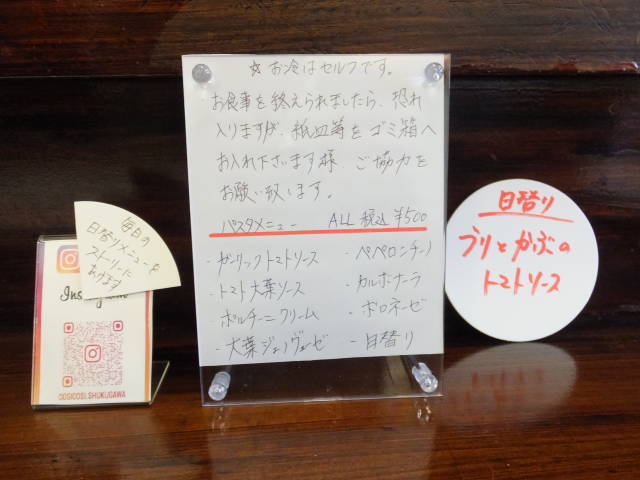 ☆ お冷はセルフです。
お食事を終えられましたら、恐れ
入りますが、紙皿等をゴミ箱へ
お入れ下さいます様、ご協力を
お願い致します。
パスタメニュー ALL 税込 ¥500
・ガーリックトマトソース ・ペペロンチーノ
・トマト大葉ソース ・カルボナーラ
ポルチーニクリーム ・ボロネーゼ
・大葉ジェノヴェーゼ ・日替り
日替り
ブリとかぶの
トマトソース
毎日の
日替りメニューを
ストーリーに
あげます
COSICOSI.SHUKUGAWA